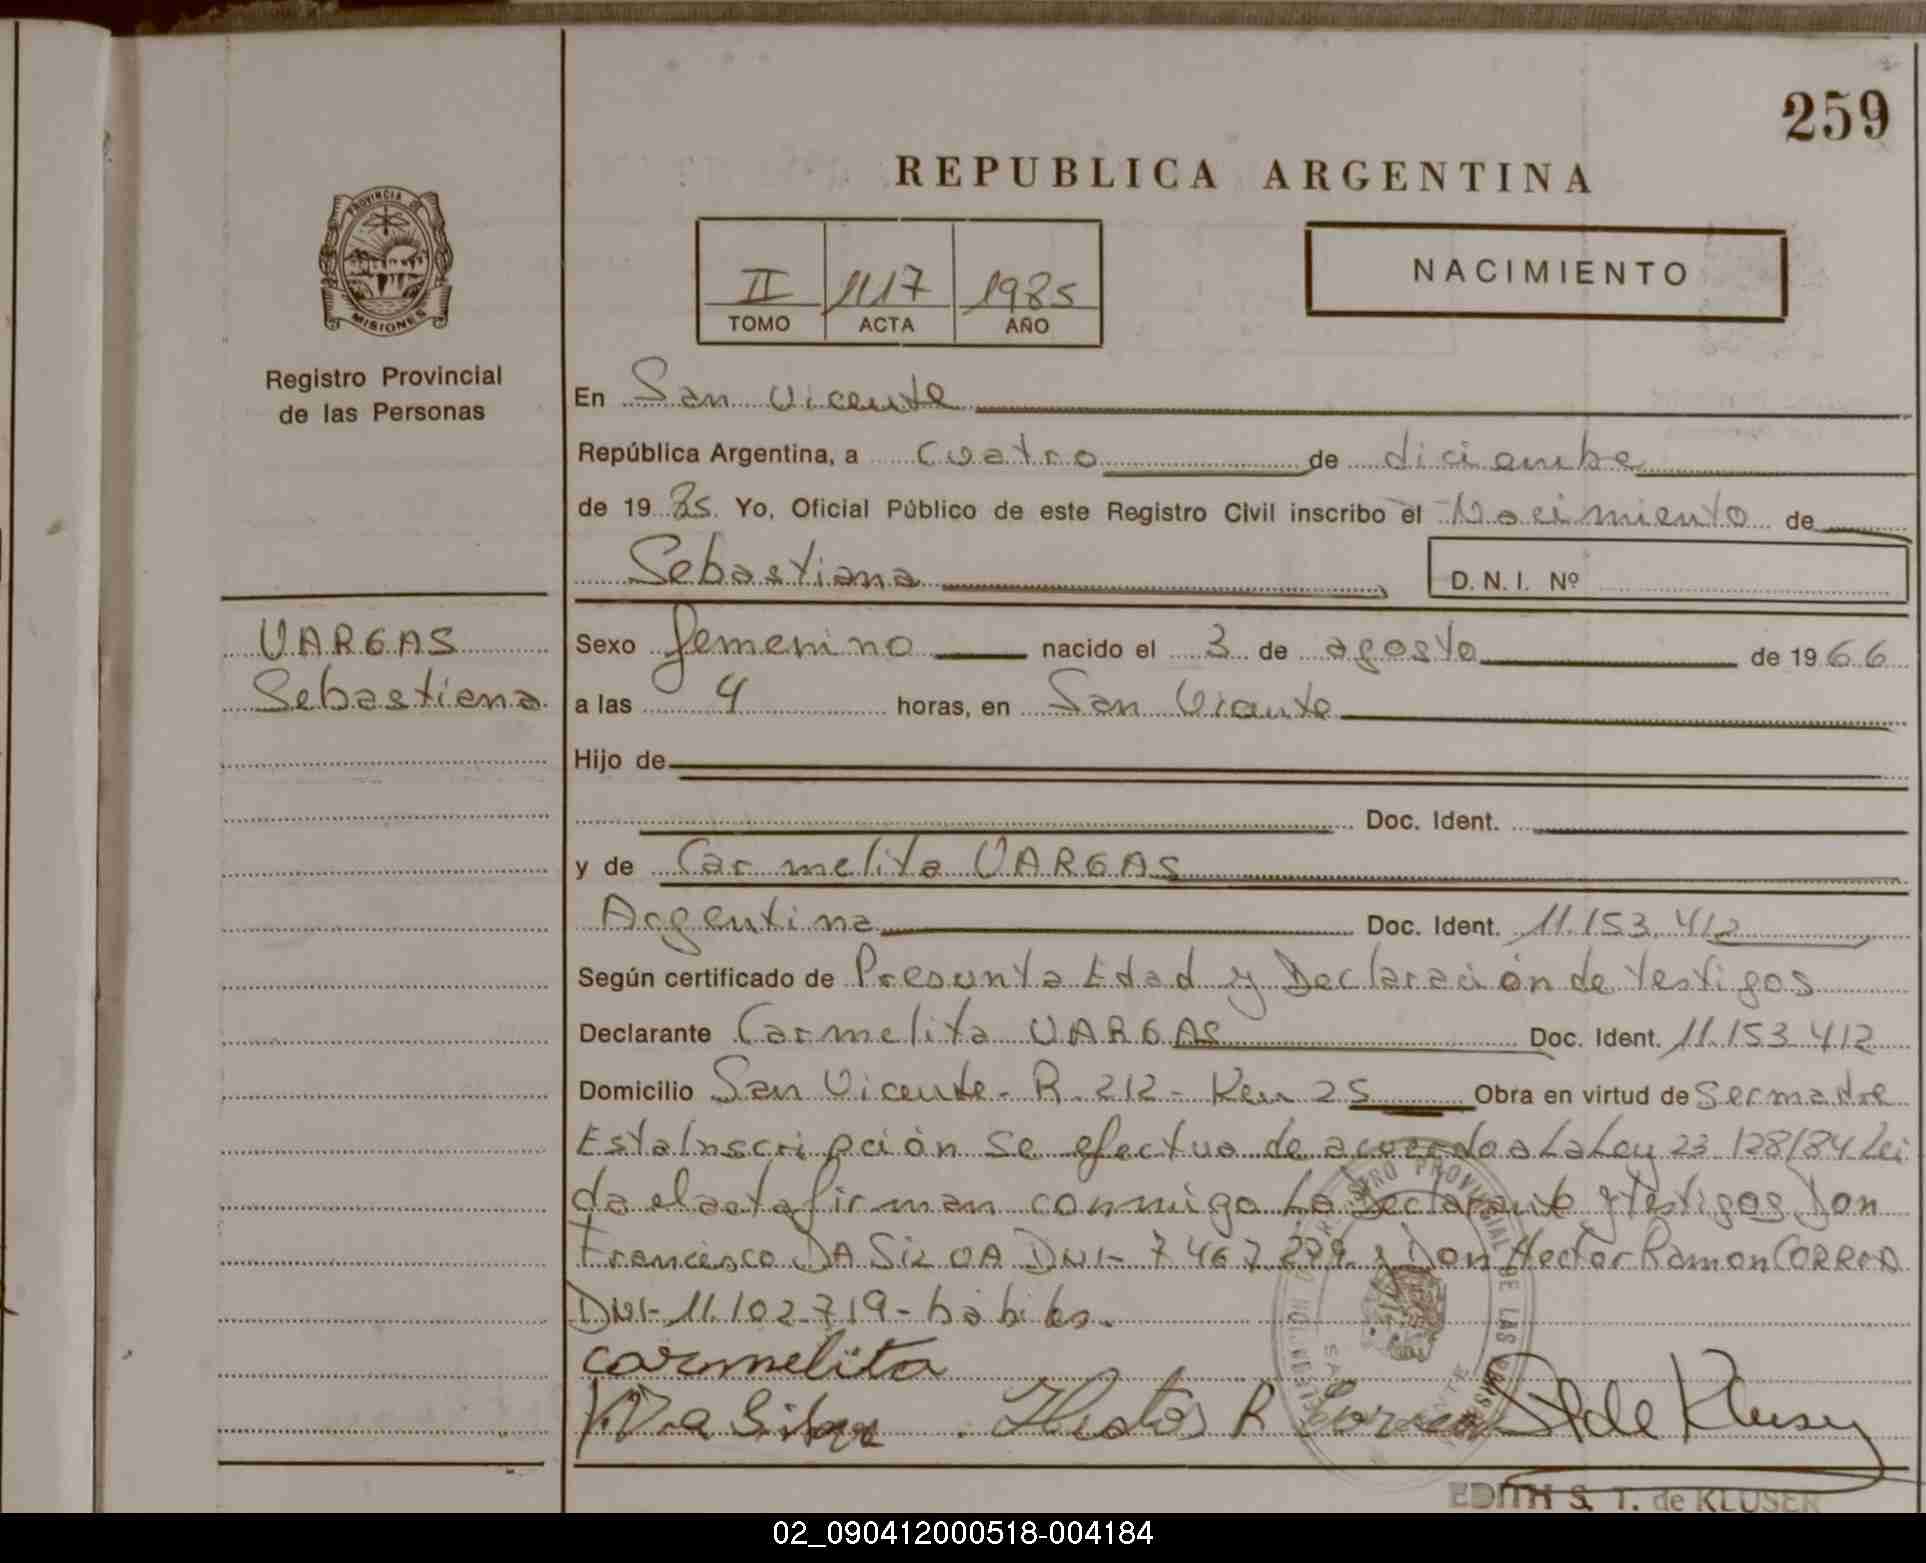 259
REPUBLICA ARGENTINA
PROVINCIA DE
MISIONES
Registro Provincial
de las Personas
II 1117 1985
TOMO ACTA AÑO
NACIMIENTO
En San Vicente
República Argentina, a cuatro de diciembre
de 1985. Yo, Oficial Público de este Registro Civil inscribo el Nacimiento de
Sebastiana D. N. I. Nº
VARGAS
Sebastiana
Sexo femenino nacido el 3 de agosto de 1966
a las 4 horas, en San Vicente
Hijo de
Doc. Ident.
y de Carmelita VARGAS
Argentina Doc. Ident. 11.153.412
Según certificado de Presunta Edad y Declaración de testigos
Declarante Carmelita VARGAS Doc. Ident. 11.153.412
Domicilio San Vicente - R. 212 - Km 25 Obra en virtud de Ser madre
Esta Inscripción se efectua de acuerdo a La Ley 23.128/84 Lei
da el acta firman conmigo La Declarante y testigos Don
Francisco DA SILVA DNI- 7.467.279 y Don Hector Ramon CORREA
DNI- 11.102.719 - hábiles.
carmelita
Da Silva Hector R Correa S T de Kluser
EDITH S. T. de KLUSER
02_090412000518-004184